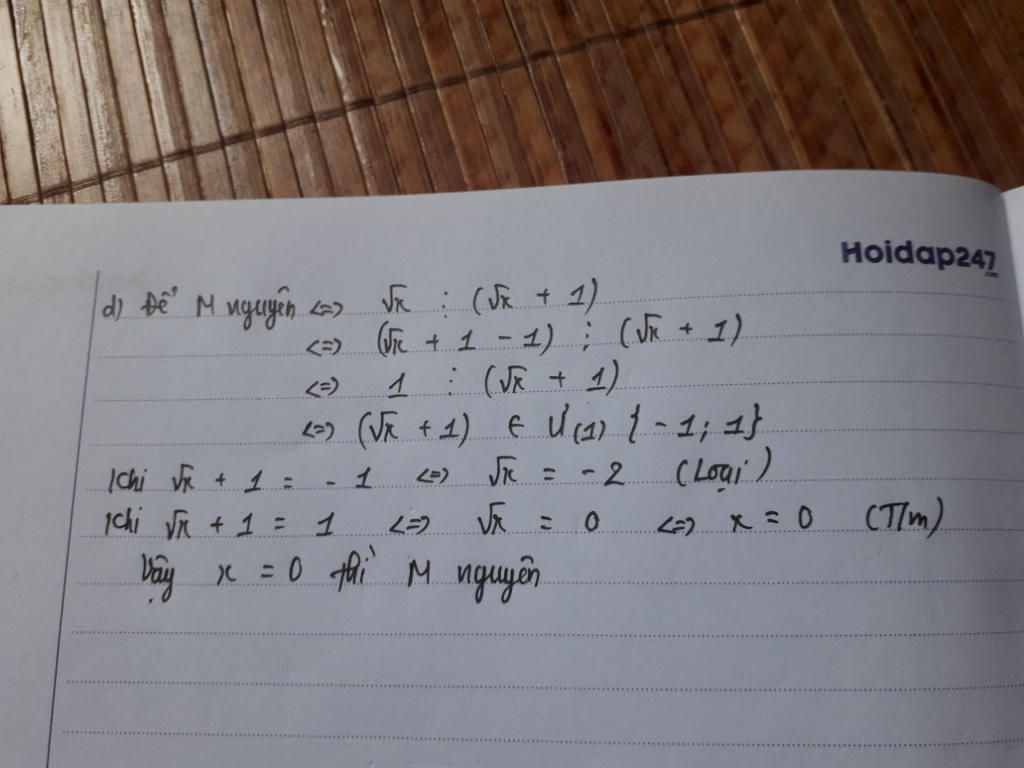 Hoidap247
.com
d) Để M nguyên <=> √x ⋮ (√x + 1)
<=> (√x + 1 - 1) ⋮ (√x + 1)
<=> 1 ⋮ (√x + 1)
<=> (√x + 1) ∈ Ư(1) {-1; 1}
Khi √x + 1 = -1 <=> √x = -2 (Loại)
Khi √x + 1 = 1 <=> √x = 0 <=> x = 0 (T/m)
Vậy x = 0 thì M nguyên